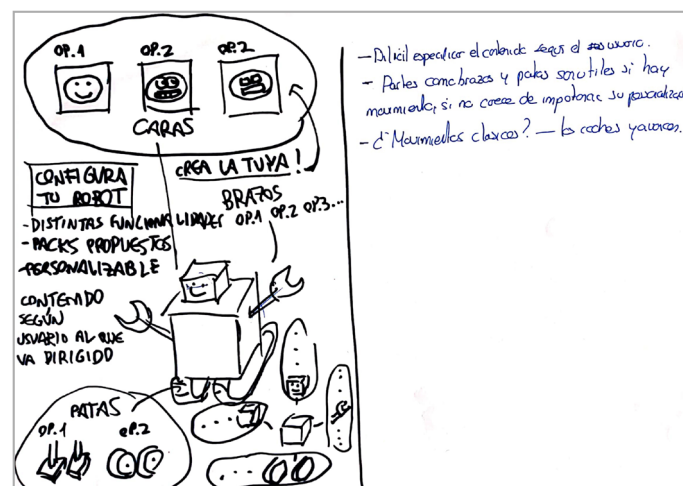 OP.1 OP.2 OP.2
CARAS
CREA LA TUYA!
CONFIGURA
TU ROBOT
BRAZOS
OP.1 OP.2 OP.3...
-DISTINTAS FUNCIONALIDADES
-PACKS PROPUESTOS
-PERSONALIZABLE
CONTENIDO
SEGÚN
USUARIO AL QUE
VA DIRIGIDO
PATAS
OP.1 OP.2
- Dificil especificar el contenido segun el usuario.
- Partes como brazos y patas son utiles si hay
movimiento, si no carece de importancia su personalizac
- ¿Movimientos clasicos? — los coches yavoros.